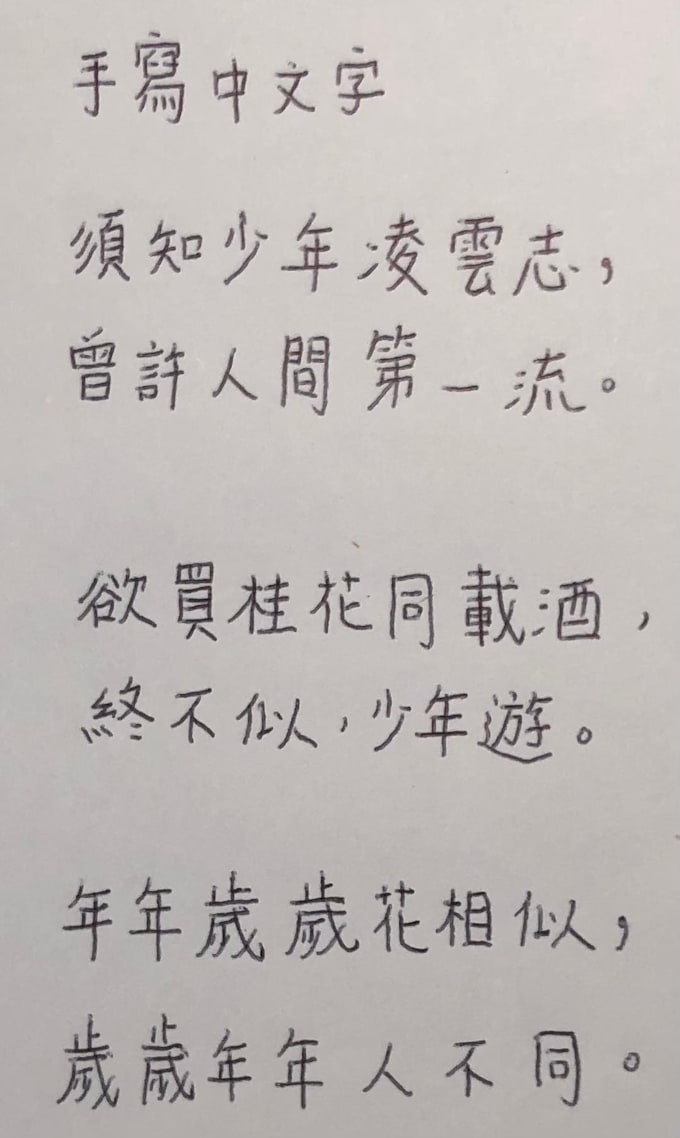 手寫中文字
須知少年凌雲志，
曾許人間第一流。
欲買桂花同載酒，
終不似，少年遊。
年年歲歲花相似，
歲歲年年人不同。